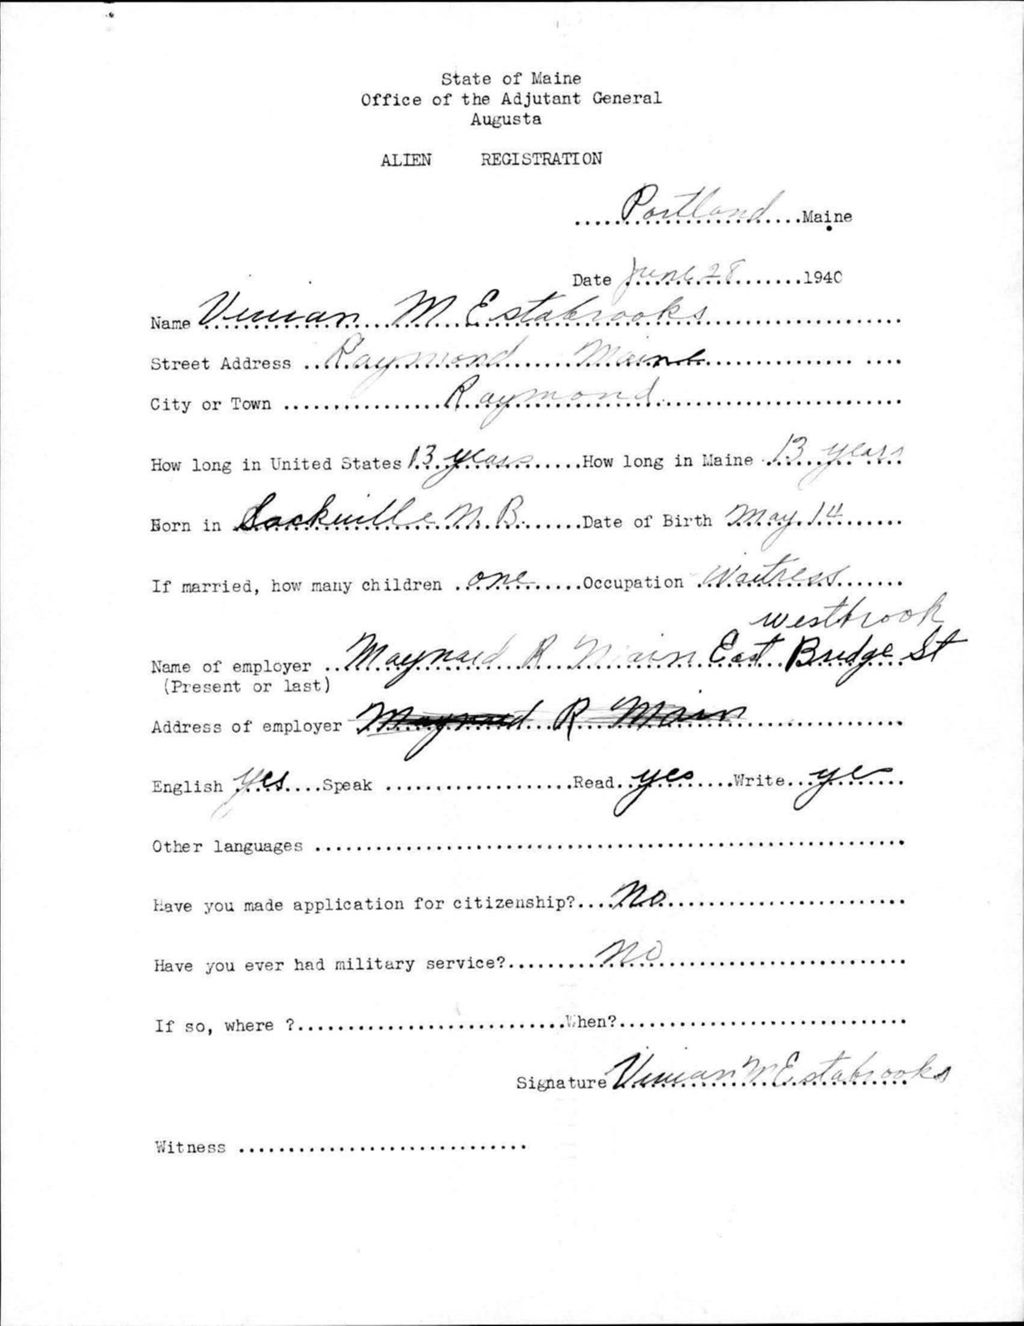 State of Maine
Office of the Adjutant General
Augusta
ALIEN REGISTRATION
Portland Maine
Date June 28 1940
Name Vivian M Estabrooks
Street Address Raymond Maine
City or Town Raymond
How long in United States 13 years How long in Maine 13 years
Born in Sackville N.B. Date of Birth May 14
If married, how many children one Occupation Waitress
westbrook
Name of employer Maynard R Main East Bridge St
(Present or last)
Address of employer Maynard R Main
English yes Speak Read yes Write ye
Other languages
Have you made application for citizenship? No
Have you ever had military service? NO
If so, where ? When?
Signature Vivian M Estabrooks
Witness